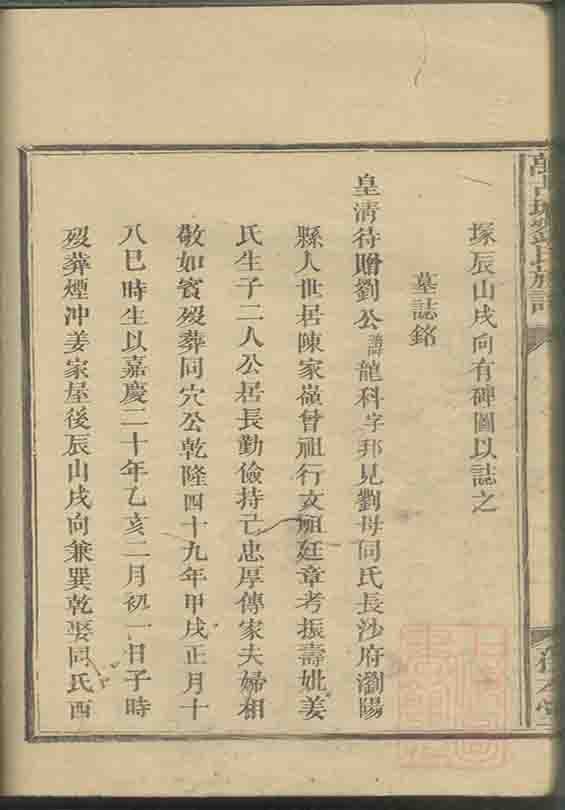 塚辰山戌向有碑圖以誌之
墓誌銘
皇清待贈劉公諱龍科字邦見劉母同氏長沙府瀏陽
縣人世居陳家嶺曾祖行文祖廷章考振壽妣姜
氏生子二人公居長勤儉持己忠厚傳家夫婦相
敬如賓歿葬同穴公乾隆四十九年甲戌正月十
八巳時生以嘉慶二十年乙亥二月初一日子時
歿葬煙冲姜家屋後辰山戌向兼巽乾娶同氏酉
劉氏族譜